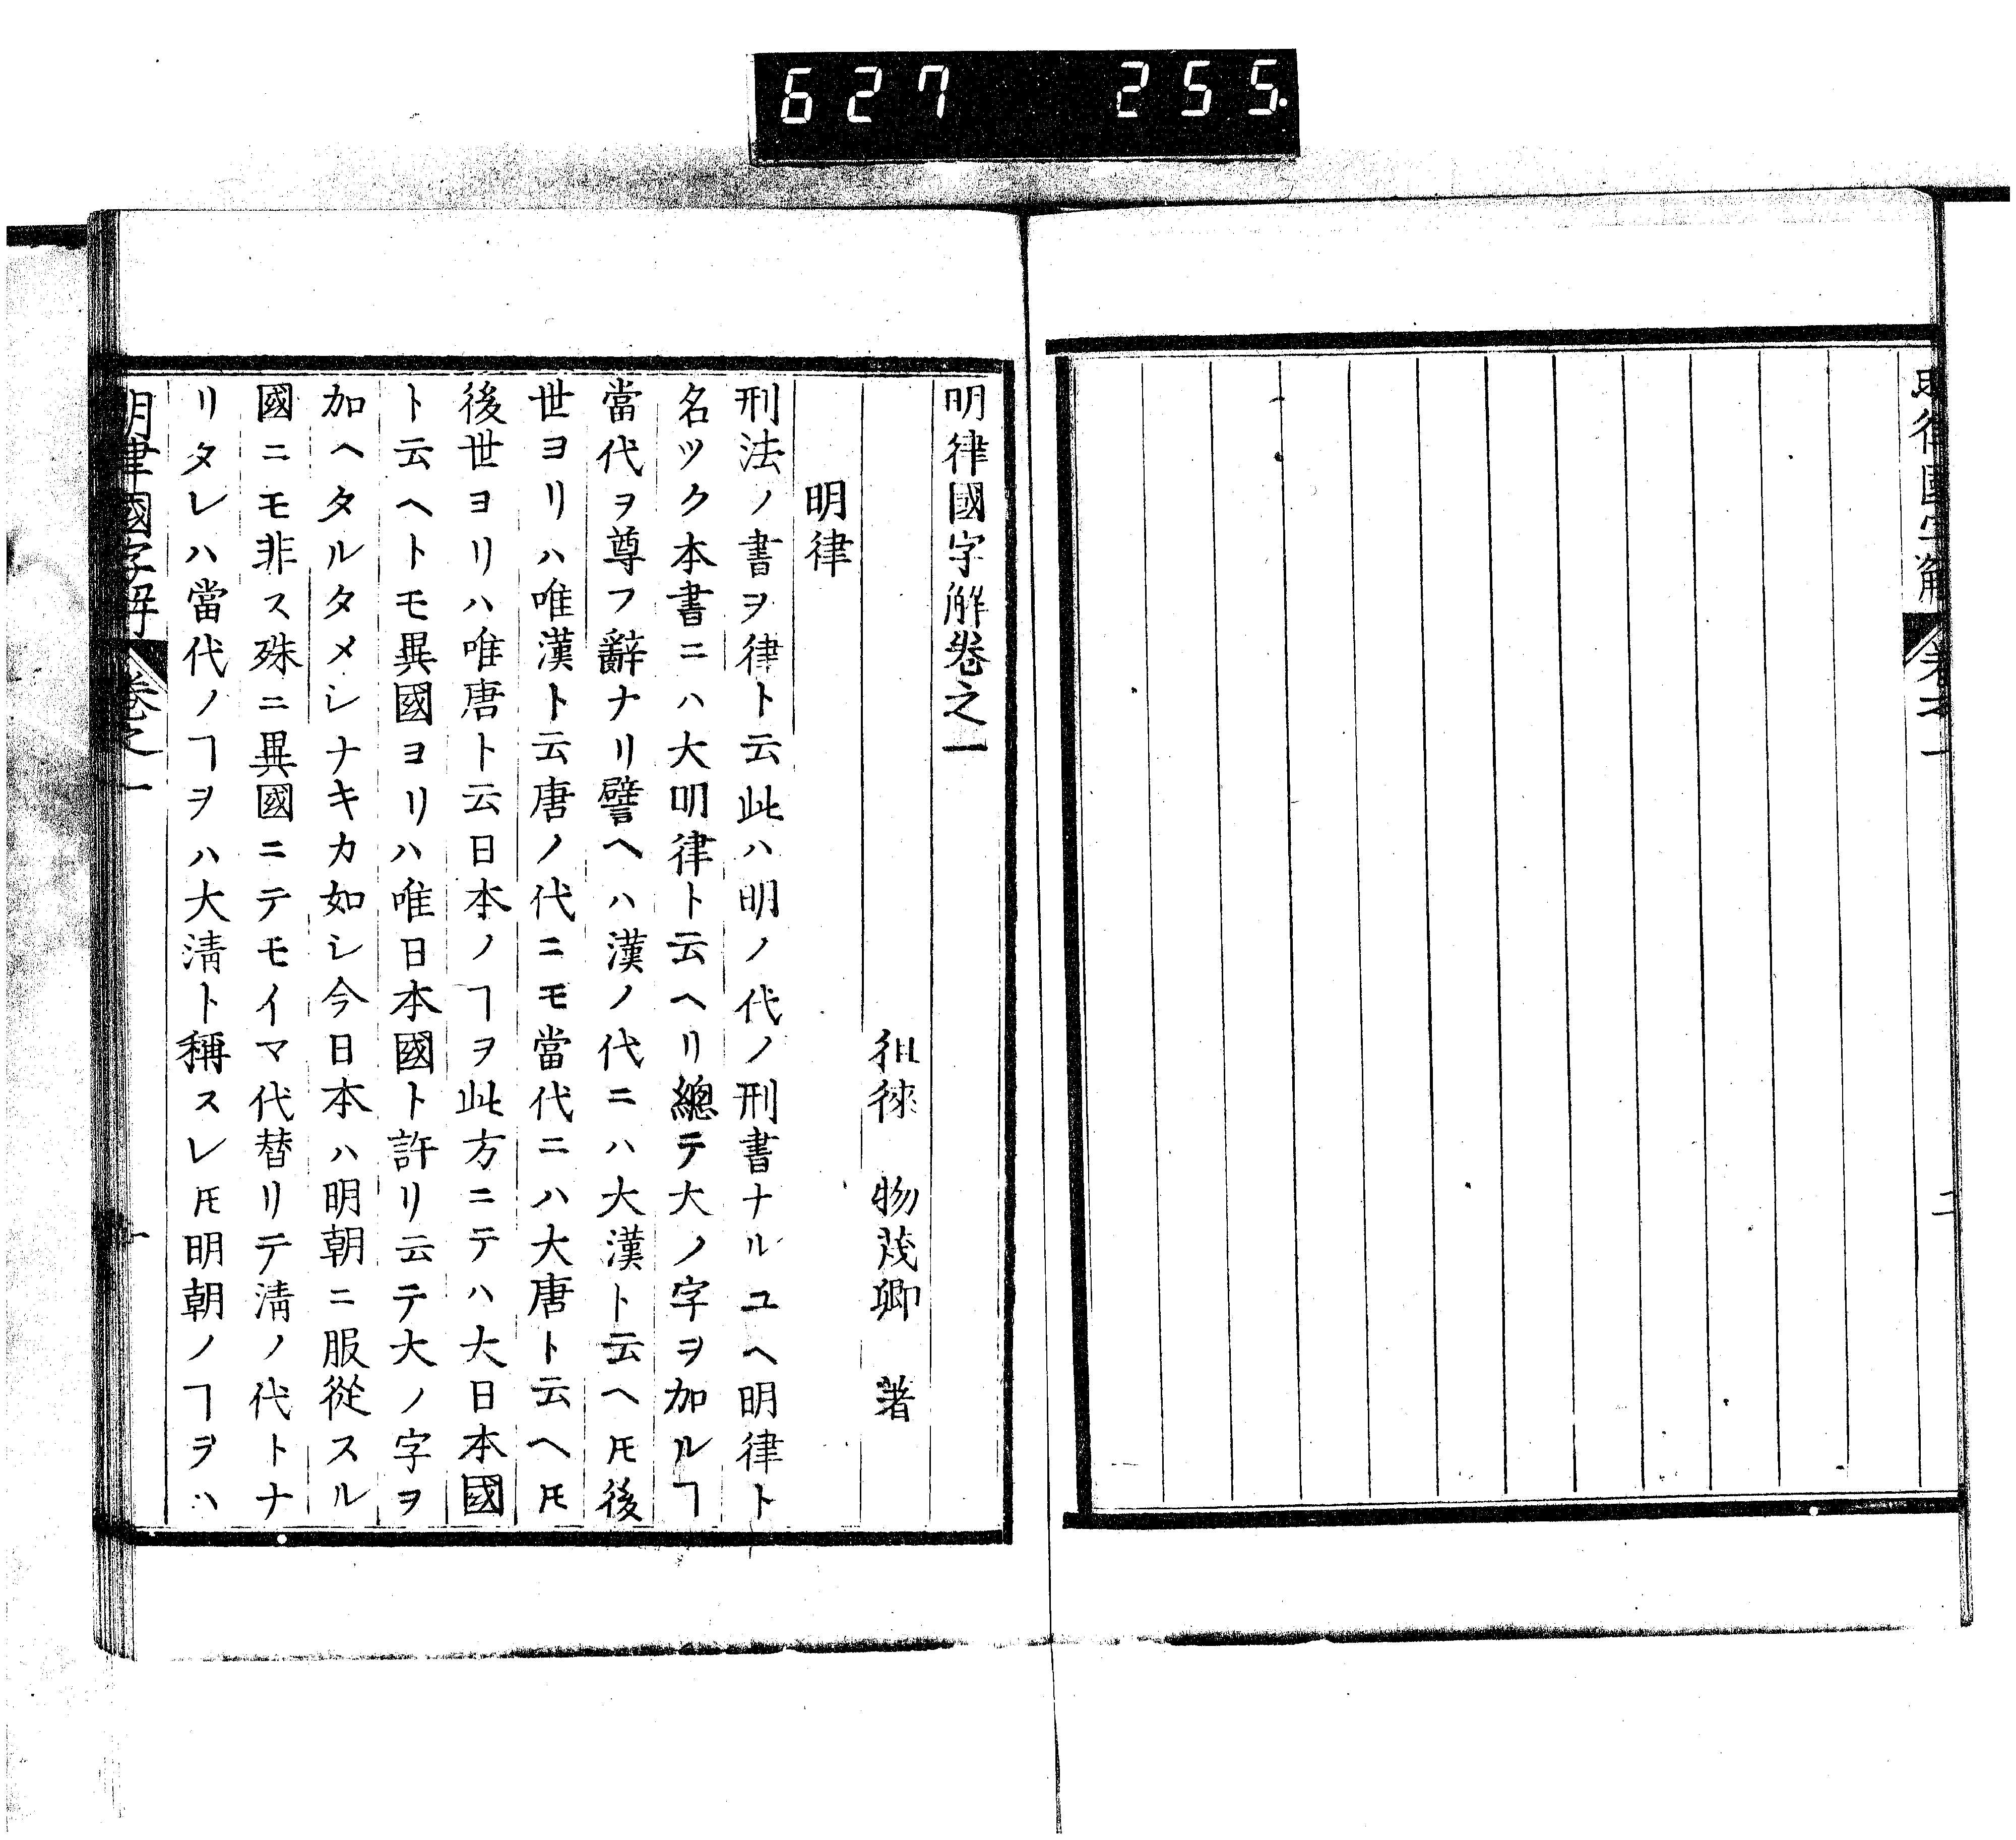 627 255.
明律國字解
卷之一
二
明律國字解卷之一
徂徠 物茂卿 著
明律
刑法ノ書ヲ律ト云此ハ明ノ代ノ刑書ナルユヘ明律ト
名ツク本書ニハ大明律ト云ヘリ總テ大ノ字ヲ加ルヿ
當代ヲ尊フ辭ナリ譬ヘハ漢ノ代ニハ大漢ト云ヘ𪜈後
世ヨリハ唯漢ト云唐ノ代ニモ當代ニハ大唐ト云ヘ𪜈
後世ヨリハ唯唐ト云日本ノヿヲ此方ニテハ大日本國
ト云ヘトモ異國ヨリハ唯日本國ト許リ云テ大ノ字ヲ
加ヘタルタメシナキカ如シ今日本ハ明朝ニ服從スル
國ニモ非ス殊ニ異國ニテモイマ代替リテ淸ノ代トナ
リタレハ當代ノヿヲハ大淸ト稱スレ𪜈明朝ノヿヲハ
明律國字解
卷之一
一